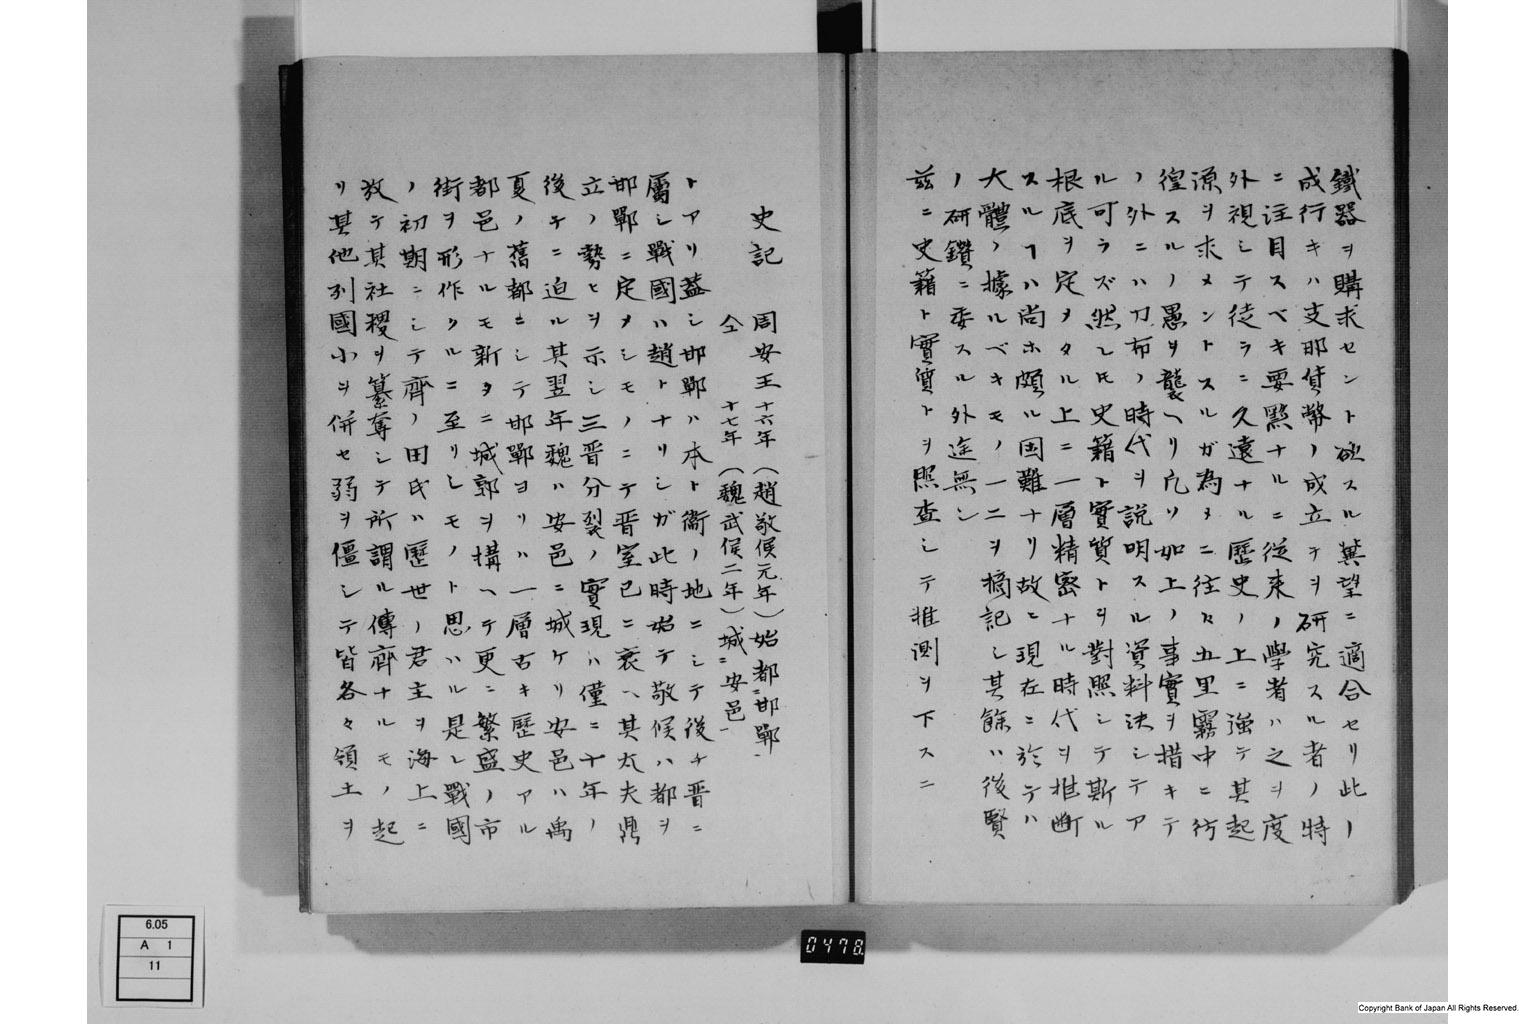 鐵器ヲ購求セント欲スル冀望ニ適合セリ此ノ
成行キハ支那貨幣ノ成立チヲ研究スル者ノ特
ニ注目スベキ要點ナルニ從来ノ學者ハ之ヲ度
外視シテ徒ラニ久遠ナル歷史ノ上ニ強テ其起
源ヲ求メントスルガ為メニ往々五里霧中ニ彷
徨スルノ愚ヲ襲ヘリ凡ソ如上ノ事實ヲ措キテ
ノ外ニハ刀布ノ時代ヲ説明スル資料決シテア
ル可ラズ然レ𪜈史籍ト實質トヲ對照シテ斯ル
根底ヲ定メタル上ニ一層精密ナル時代ヲ推断
スルヿハ尚ホ頗ル困難ナリ故ニ現在ニ於テハ
大體ノ據ルベキモノ一二ヲ摘記シ其餘ハ後賢
ノ研鑽ニ委スル外途無シ
茲ニ史籍ト實質トヲ照査シテ推測ヲ下スニ
史記　周安王十六年（趙敬侯元年）始都ニ邯鄲ー
仝　十七年（魏武侯二年）城ニ安邑ー
トアリ蓋シ邯鄲ハ本ト衞ノ地ニシテ後チ晋ニ
屬シ戰國ハ趙トナリシガ此時始テ敬侯ハ都ヲ
邯鄲ニ定メシモノニテ晋室已ニ衰ヘ其大夫鼎
立ノ勢ヒヲ示シ三晋分裂ノ實現ハ僅ニ十年ノ
後チニ迫ル其翌年魏ハ安邑ニ城ケリ安邑ハ禹
夏ノ舊都ニシテ邯鄲ヨリハ一層古キ歷史アル
都邑ナルモ新タニ城郭ヲ構ヘテ更ニ繁盛ノ市
街ヲ形作クルニ至リシモノト思ハル是レ戰國
ノ初期ニシテ齊ノ田氏ハ歷世ノ君主ヲ海上ニ
放テ其社稷ヲ簒奪シテ所謂ル傳齊ナルモノ起
リ其他列國小ヲ併セ弱ヲ僵シテ皆各々領土ヲ
6.05
A 1
11
0478.
Copyright Bank of Japan All Rights Reserved.